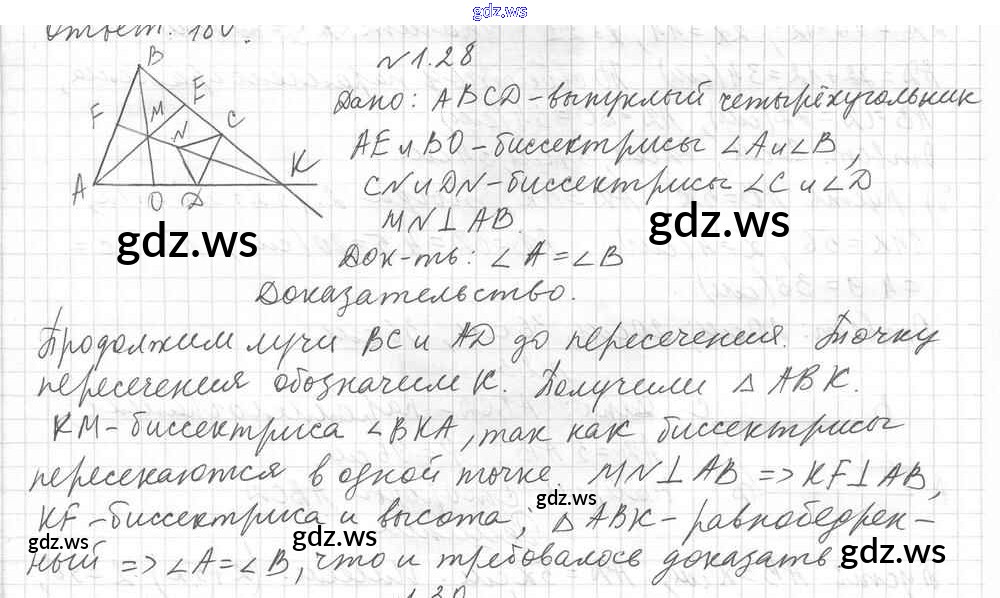 gdz.ws
Ответ: 180.
N1.28
B
E
F
M
N
C
K
A
O
D
Дано: ABCD - выпуклый четырёхугольник
AE и BO - биссектрисы ∠A и ∠B,
CN и DN - биссектрисы ∠C и ∠D
MN⊥AB.
gdz.ws
gdz.ws
Док-ть: ∠A = ∠B
Доказательство.
Продолжим лучи BC и AD до пересечения. Точку
пересечения обозначим K. Получили △ABK.
KM - биссектриса ∠BKA, так как биссектрисы
пересекаются в одной точке. MN⊥AB => KF⊥AB,
gdz.ws
KF - биссектриса и высота; △ABK - равнобедрен-
gdz.ws
gdz.ws
gdz.ws
ный => ∠A = ∠B, что и требовалось доказать